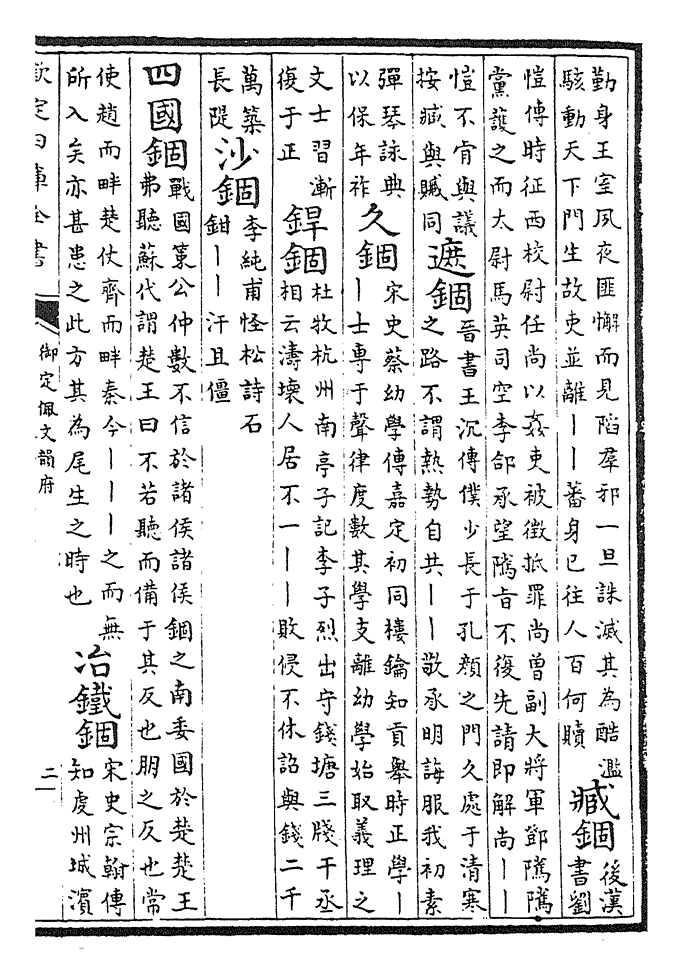 勤身王室夙夜匪懈而見陷羣邪一旦誅滅其為酷濫
駭動天下門生故吏並離丨丨蕃身已往人百何贖
臧錮
後漢
書劉
愷傳時征西校尉任尚以姦吏被徵抵罪尚曾副大將軍鄧隲隲
黨護之而太尉馬英司空李郃承望隲旨不復先請即解尚丨丨
愷不肯與議
按臧與贓同
遮錮
晉書王沉傳僕少長于孔顏之門久處于清寒
之路不謂熱勢自共丨丨敬承明誨服我初素
彈琴詠典
以保年祚
久錮
宋史蔡幼學傳嘉定初同樓鑰知貢舉時正學丨
丨士專于聲律度數其學支離幼學始取義理之
文士習漸
復于正
銲錮
杜牧杭州南亭子記李子烈出守錢塘三牋干丞
相云濤壞人居不一丨丨敗侵不休詔與錢二千
萬築
長隄
沙錮
李純甫怪松詩石
鉗丨丨汗且僵
四國錮
戰國策公仲數不信於諸侯諸侯錮之南委國於楚楚王
弗聽蘇代謂楚王曰不若聽而備于其反也朋之反也常
使趙而畔楚仗齊而畔秦今丨丨丨之而無
所入矣亦甚患之此方其為尾生之時也
冶鐵錮
宋史宗翰傳
知虔州城濱
欽定四庫全書
御定佩文韻府
二一